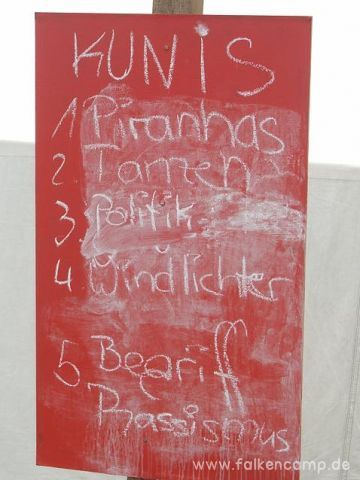 KUNiS
1 Piranhas
2 Tanzen
3. Politik
4. Windlichter
5. Begriff
Rassismus
www.falkencamp.de